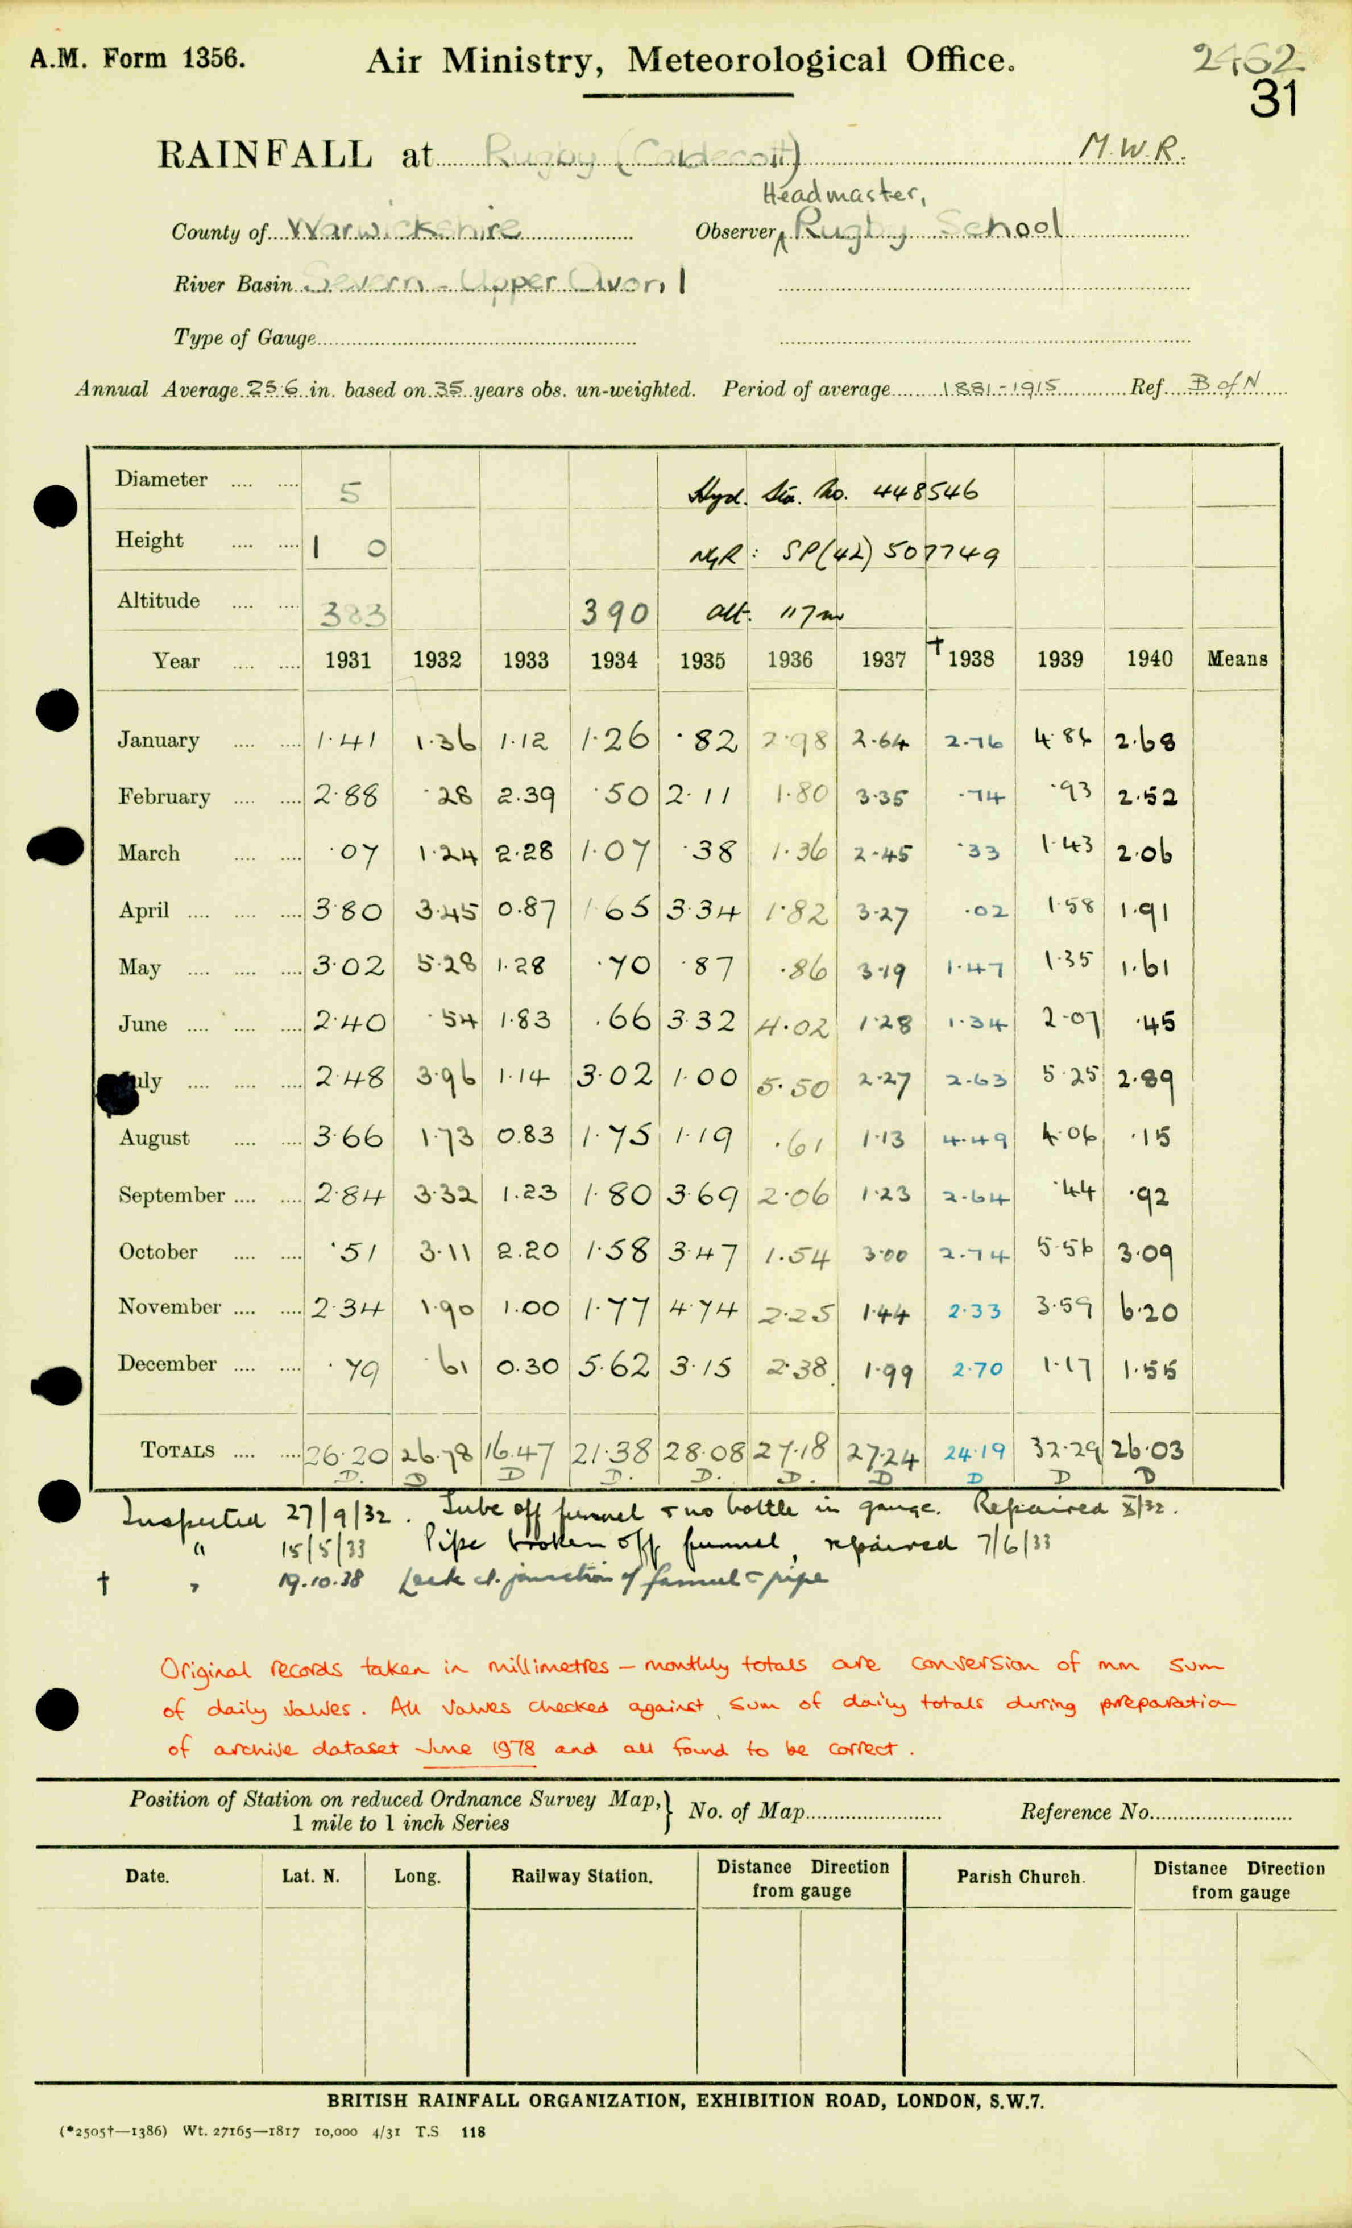 A.M. Form 1356. Air Ministry, Meteorological Office. 2462
31
RAINFALL at Rugby (Caldecott) M.W.R.
Headmaster,
County of Warwickshire Observer Rugby School
River Basin Severn - Upper Avon 1
Type of Gauge
Annual Average 25.6 in. based on 35 years obs. un-weighted. Period of average 1881-1915 Ref. B of N
Diameter 5 Hyd. Stn. No. 448546
Height 1 0 NGR: SP(42) 507749
Altitude 383 390 alt. 117m
Year 1931 1932 1933 1934 1935 1936 1937 † 1938 1939 1940 Means
January 1.41 1.36 1.12 1.26 .82 2.98 2.64 2.76 4.86 2.68
February 2.88 .28 2.39 .50 2.11 1.80 3.35 .74 .93 2.52
March .07 1.24 2.28 1.07 .38 1.36 2.45 .33 1.43 2.06
April 3.80 3.45 0.87 1.65 3.34 1.82 3.27 .02 1.58 1.91
May 3.02 5.28 1.28 .70 .87 .86 3.19 1.47 1.35 1.61
June 2.40 .54 1.83 .66 3.32 4.02 1.28 1.34 2.07 .45
July 2.48 3.96 1.14 3.02 1.00 5.50 2.27 2.63 5.25 2.89
August 3.66 1.73 0.83 1.75 1.19 .61 1.13 4.49 4.06 .15
September 2.84 3.32 1.23 1.80 3.69 2.06 1.23 2.64 .44 .92
October .51 3.11 2.20 1.58 3.47 1.54 3.00 2.74 5.56 3.09
November 2.34 1.90 1.00 1.77 4.74 2.25 1.44 2.33 3.59 6.20
December .79 .61 0.30 5.62 3.15 2.38 1.99 2.70 1.17 1.55
TOTALS 26.20 26.78 16.47 21.38 28.08 27.18 27.24 24.19 32.29 26.03
D. D D D. D. D. D D D D
Inspected 27/9/32. Tube off funnel & no bottle in gauge. Repaired X/32.
" 15/5/33 Pipe broken off funnel, repaired 7/6/33
† " 19.10.38 Leak at junction of funnel & pipe
Original records taken in millimetres - monthly totals are conversion of mm sum
of daily values. All values checked against sum of daily totals during preparation
of archive dataset June 1978 and all found to be correct.
Position of Station on reduced Ordnance Survey Map,} No. of Map Reference No.
1 mile to 1 inch Series
Date. Lat. N. Long. Railway Station. Distance Direction from gauge Parish Church. Distance Direction from gauge
BRITISH RAINFALL ORGANIZATION, EXHIBITION ROAD, LONDON, S.W.7.
(*2505†—1386) Wt. 27165—1817 10,000 4/31 T.S 118